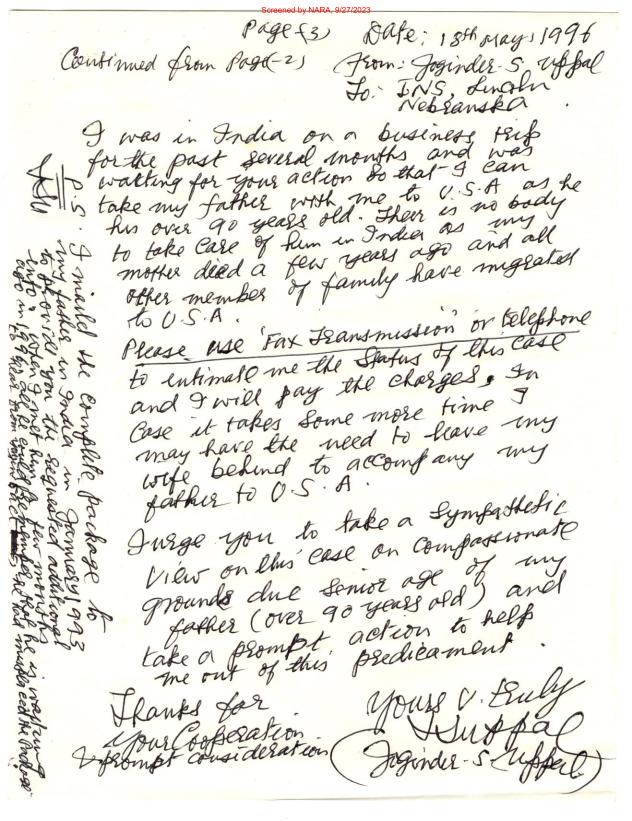 Screened by NARA, 9/27/2023
Page (3) Date: 18th May, 1996
Continued from Page(-2) From: Joginder-S. Uppal
To: INS, Lincoln
Nebranska.
I was in India on a business trip
for the past several months and was
waiting for your action so that I can
take my father with me to U.S.A as he
his over 90 years old. Their is no body
to take care of him in India as my
mother died a few years ago and all
other member of family have migrated
to U.S.A.
Please use 'Fax Transmission' or telephone
to intimate me the status of this case
and I will pay the charges. In
case it takes some more time I
may have the need to leave my
wife behind to accompany my
father to U.S.A.
I urge you to take a sympathetic
view on this case on compassionate
grounds due senior age of my
father (over 90 years old) and
take a prompt action to help
me out of this predicament.
Thanks for
your Cooperation
& prompt consideration
Yours V. Truly
JSUppal
(Joginder-S. Uppal)
P.S. I maild the complete package to
my father in India in January 1993
to provide you the requested additional
info. When I met him a few months
ago in 1996, he
that he is waiting
to hear from your office